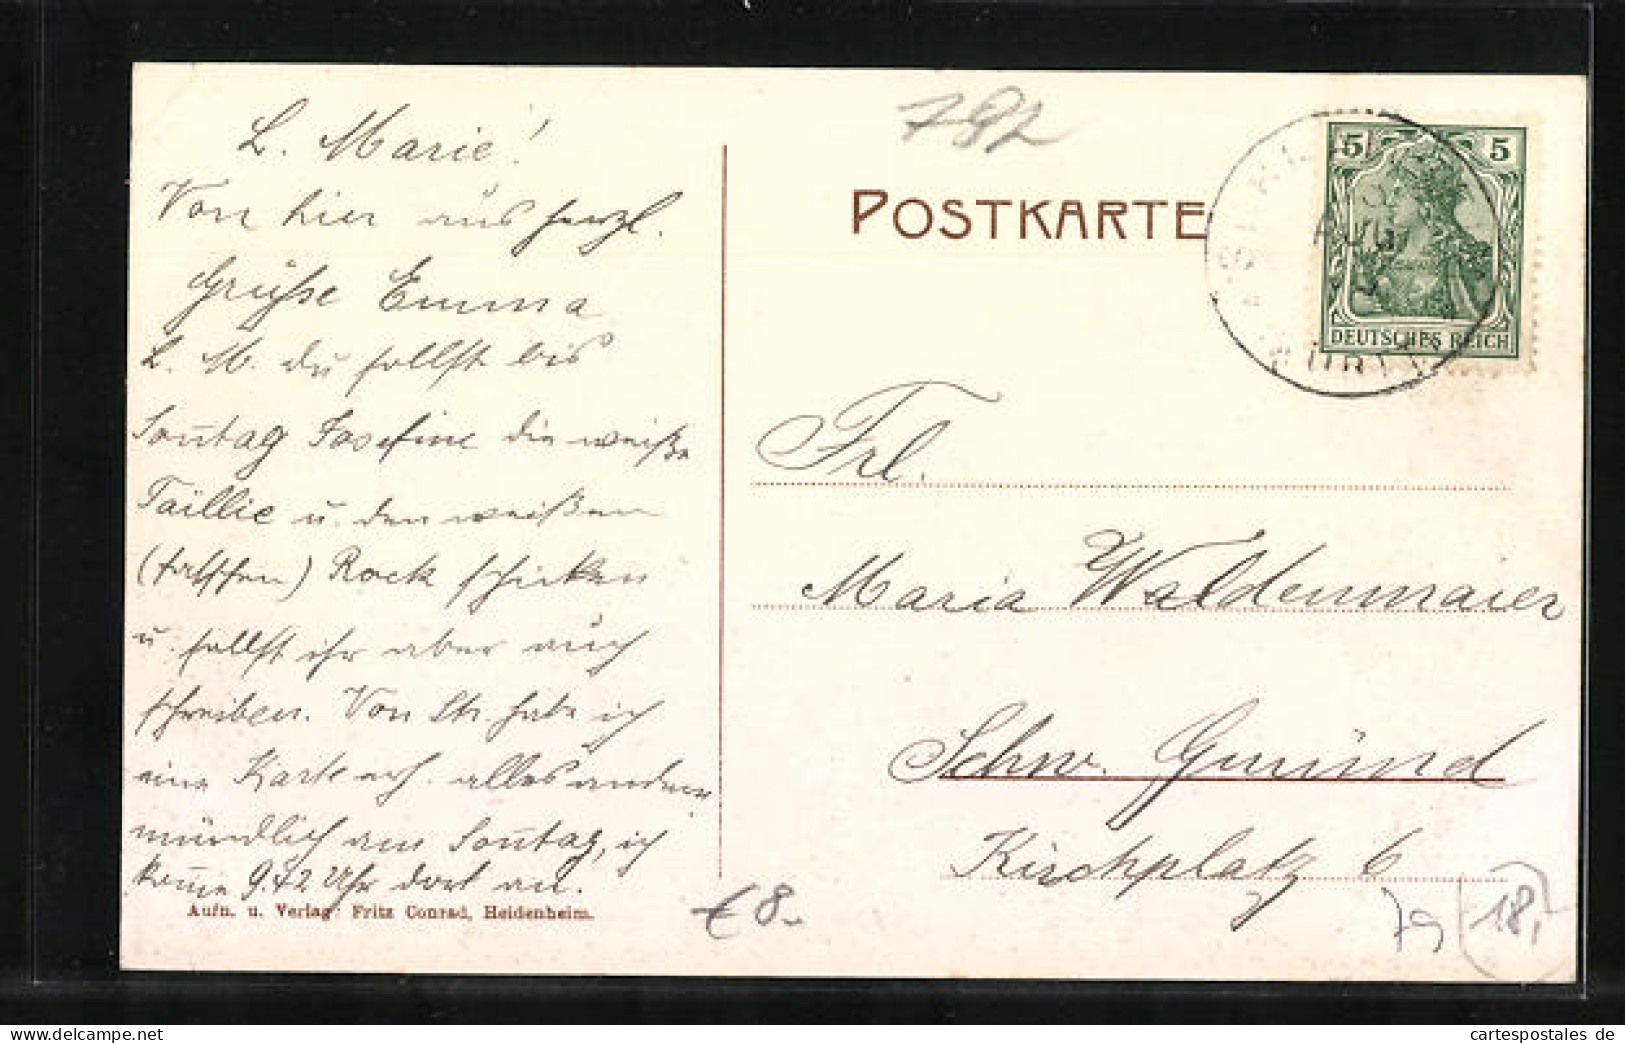 L. Marie!
Von hier aus herzl.
Grüße Emma
L. M. du sollst bis
Soñtag Josefine die weiße
Taillie u. den weißen
Rock schicken
u. sollst ihr aber auch
schreiben. Von Str. habe ich
eine Karte erh. alles andere
mündlich am Soñtag, ich
kom̄e 9.42 Uhr dort an.
Aufn. u. Verlag: Fritz Conrad, Heidenheim.
782
POSTKARTE
5 5
AUG
DEUTSCHES REICH
Frl.
Maria Waldenmaier
Schw. Gmünd
Kirchplatz 6
€ 8.-
79
18,-
delcampe.net
cartespostales de